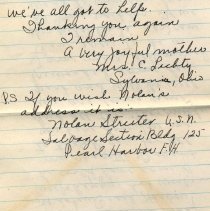 we've all got to help..
Thanking you again
I remain
A very joyful mother
Mrs. C Liebty
Sylvania, Ohio
P.S If you wish Nolan's
address it is:
Nolan Streeter U.S.N.
Salvage Section Bldg 125
Pearl Harbor T.H